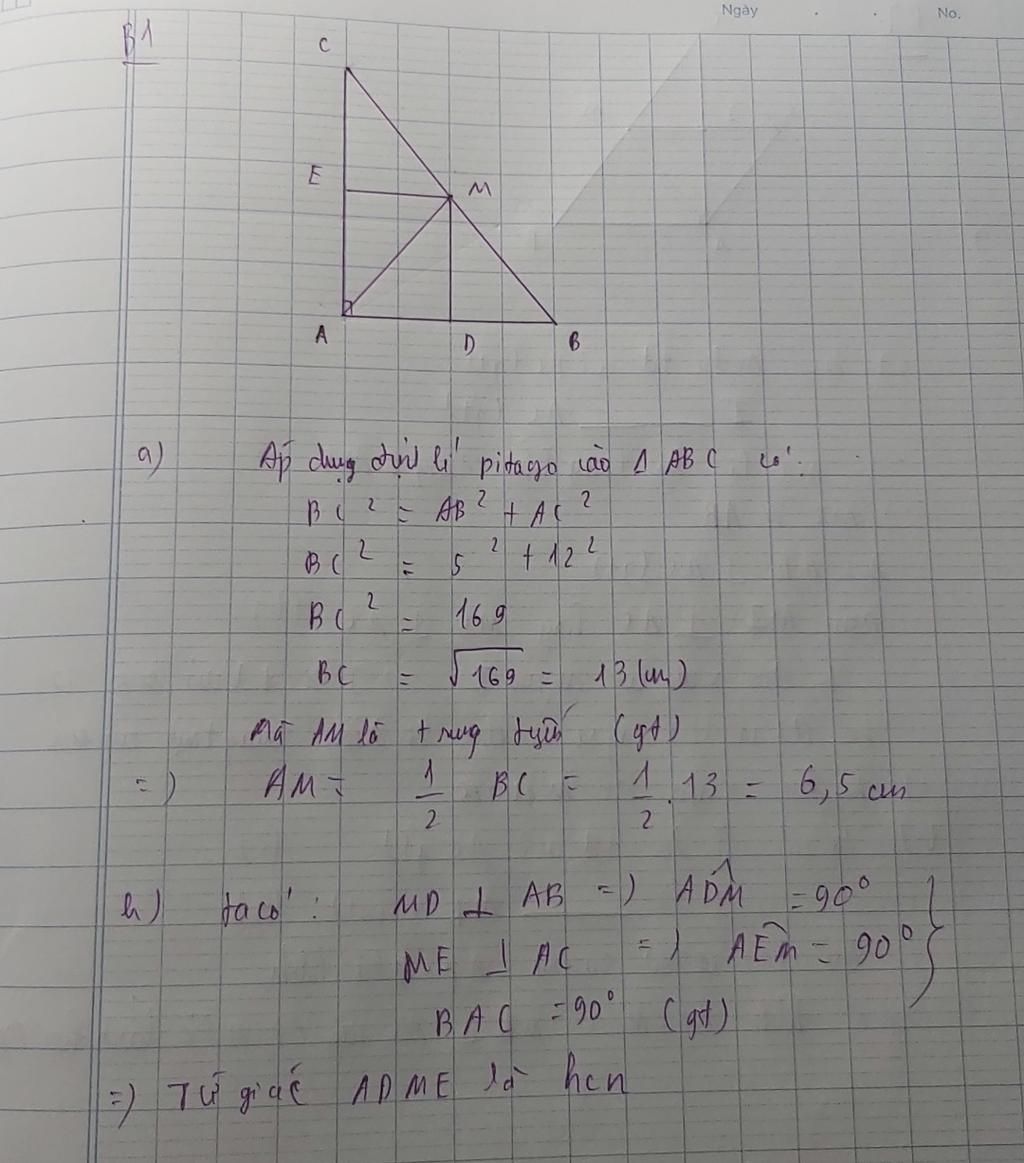 Ngày . . No.
B1
C
E M
A D B
a) Áp dụng định lí pitago vào Δ ABC có:
BC² = AB² + AC²
BC² = 5² + 12²
BC² = 169
BC = √169 = 13 (cm)
Mà AM là trung tuyến (gt)
=) AM = 1/2 BC = 1/2 . 13 = 6,5 cm
b) ta có: MD ⊥ AB =) ADM̂ = 90°
ME ⊥ AC =) AEM̂ = 90°
BAC = 90° (gt)
=) Tứ giác ADME là hcn